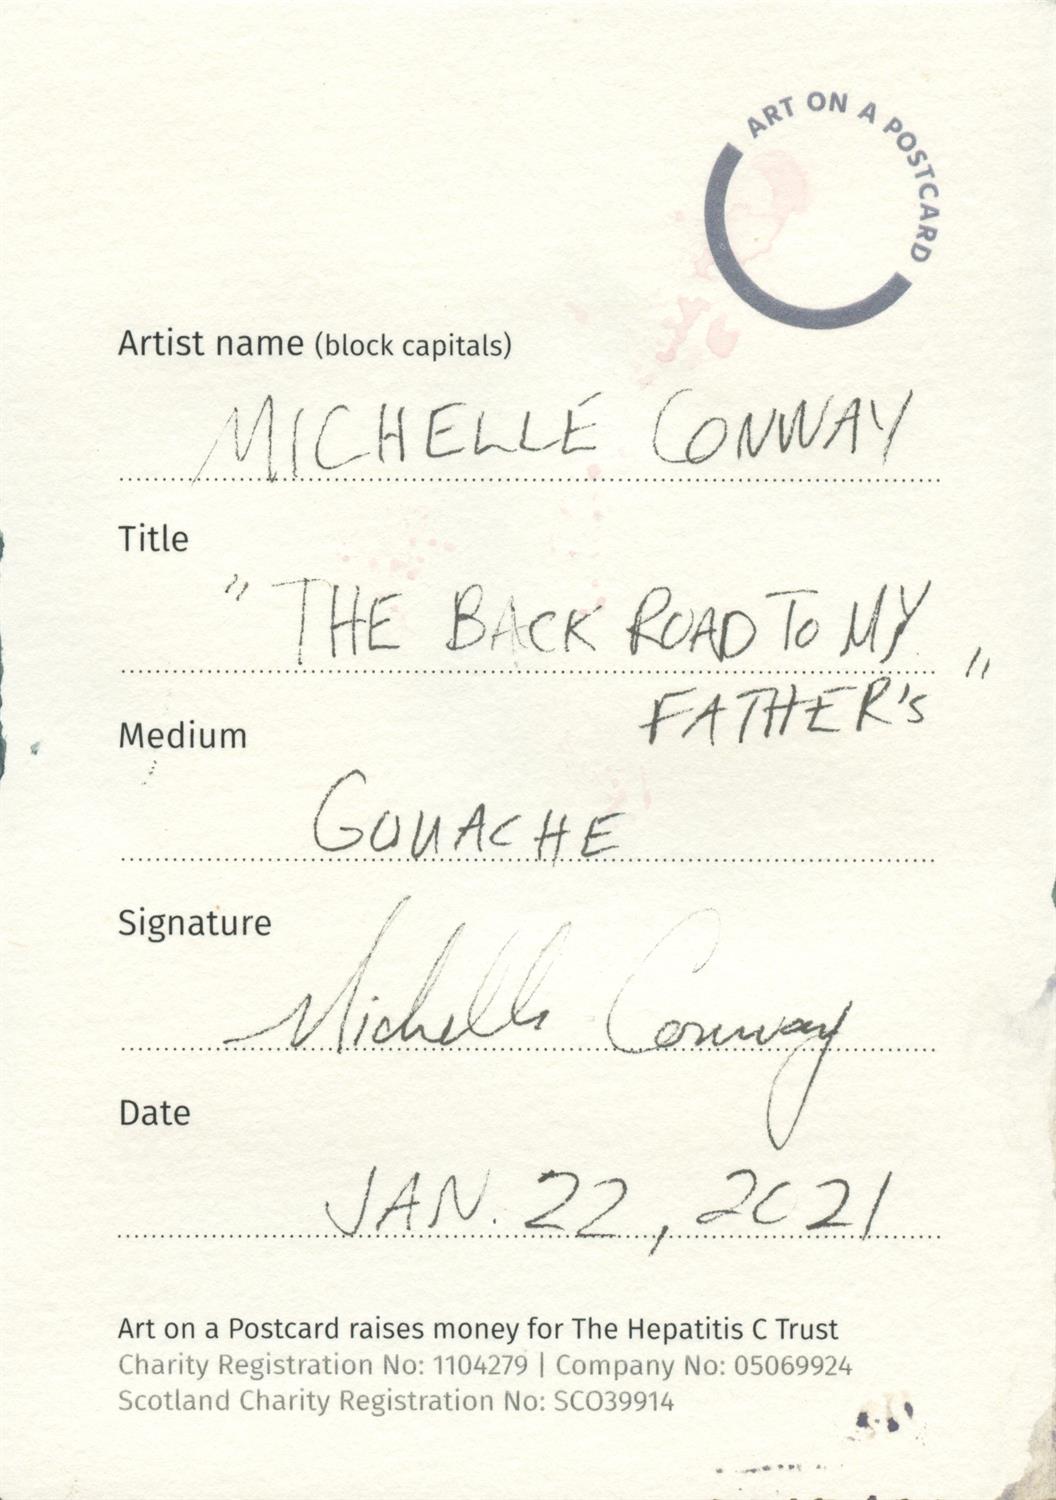 ART ON A POSTCARD
Artist name (block capitals)
MICHELLE CONWAY
Title
"THE BACK ROAD TO MY
FATHER'S"
Medium
GOUACHE
Signature
Michelle Conway
Date
JAN. 22, 2021
Art on a Postcard raises money for The Hepatitis C Trust
Charity Registration No: 1104279 | Company No: 05069924
Scotland Charity Registration No: SCO39914